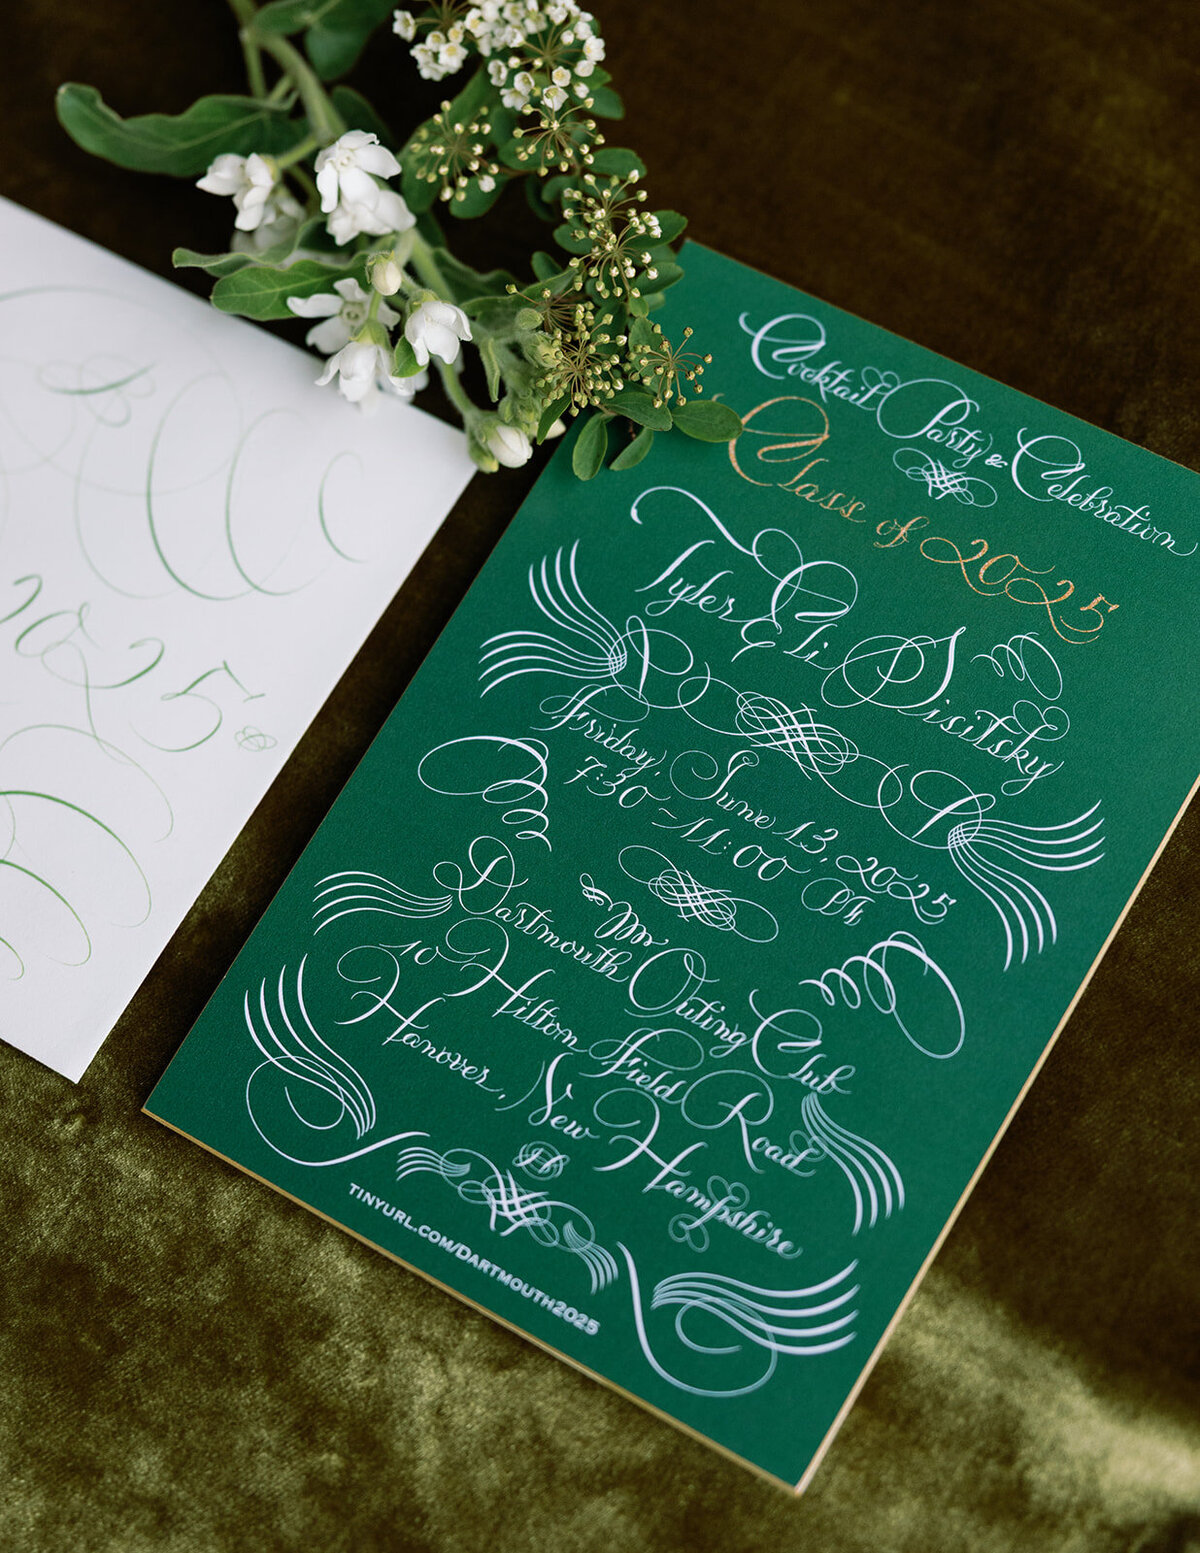 Cocktail Party & Celebration
Class of 2025
Tyler Eli Disitsky
Friday, June 13, 2025
7:30 ~ 11:00 PM
Dartmouth Outing Club
10 Hilton Field Road
Hanover, New Hampshire
TINYURL.COM/DARTMOUTH2025